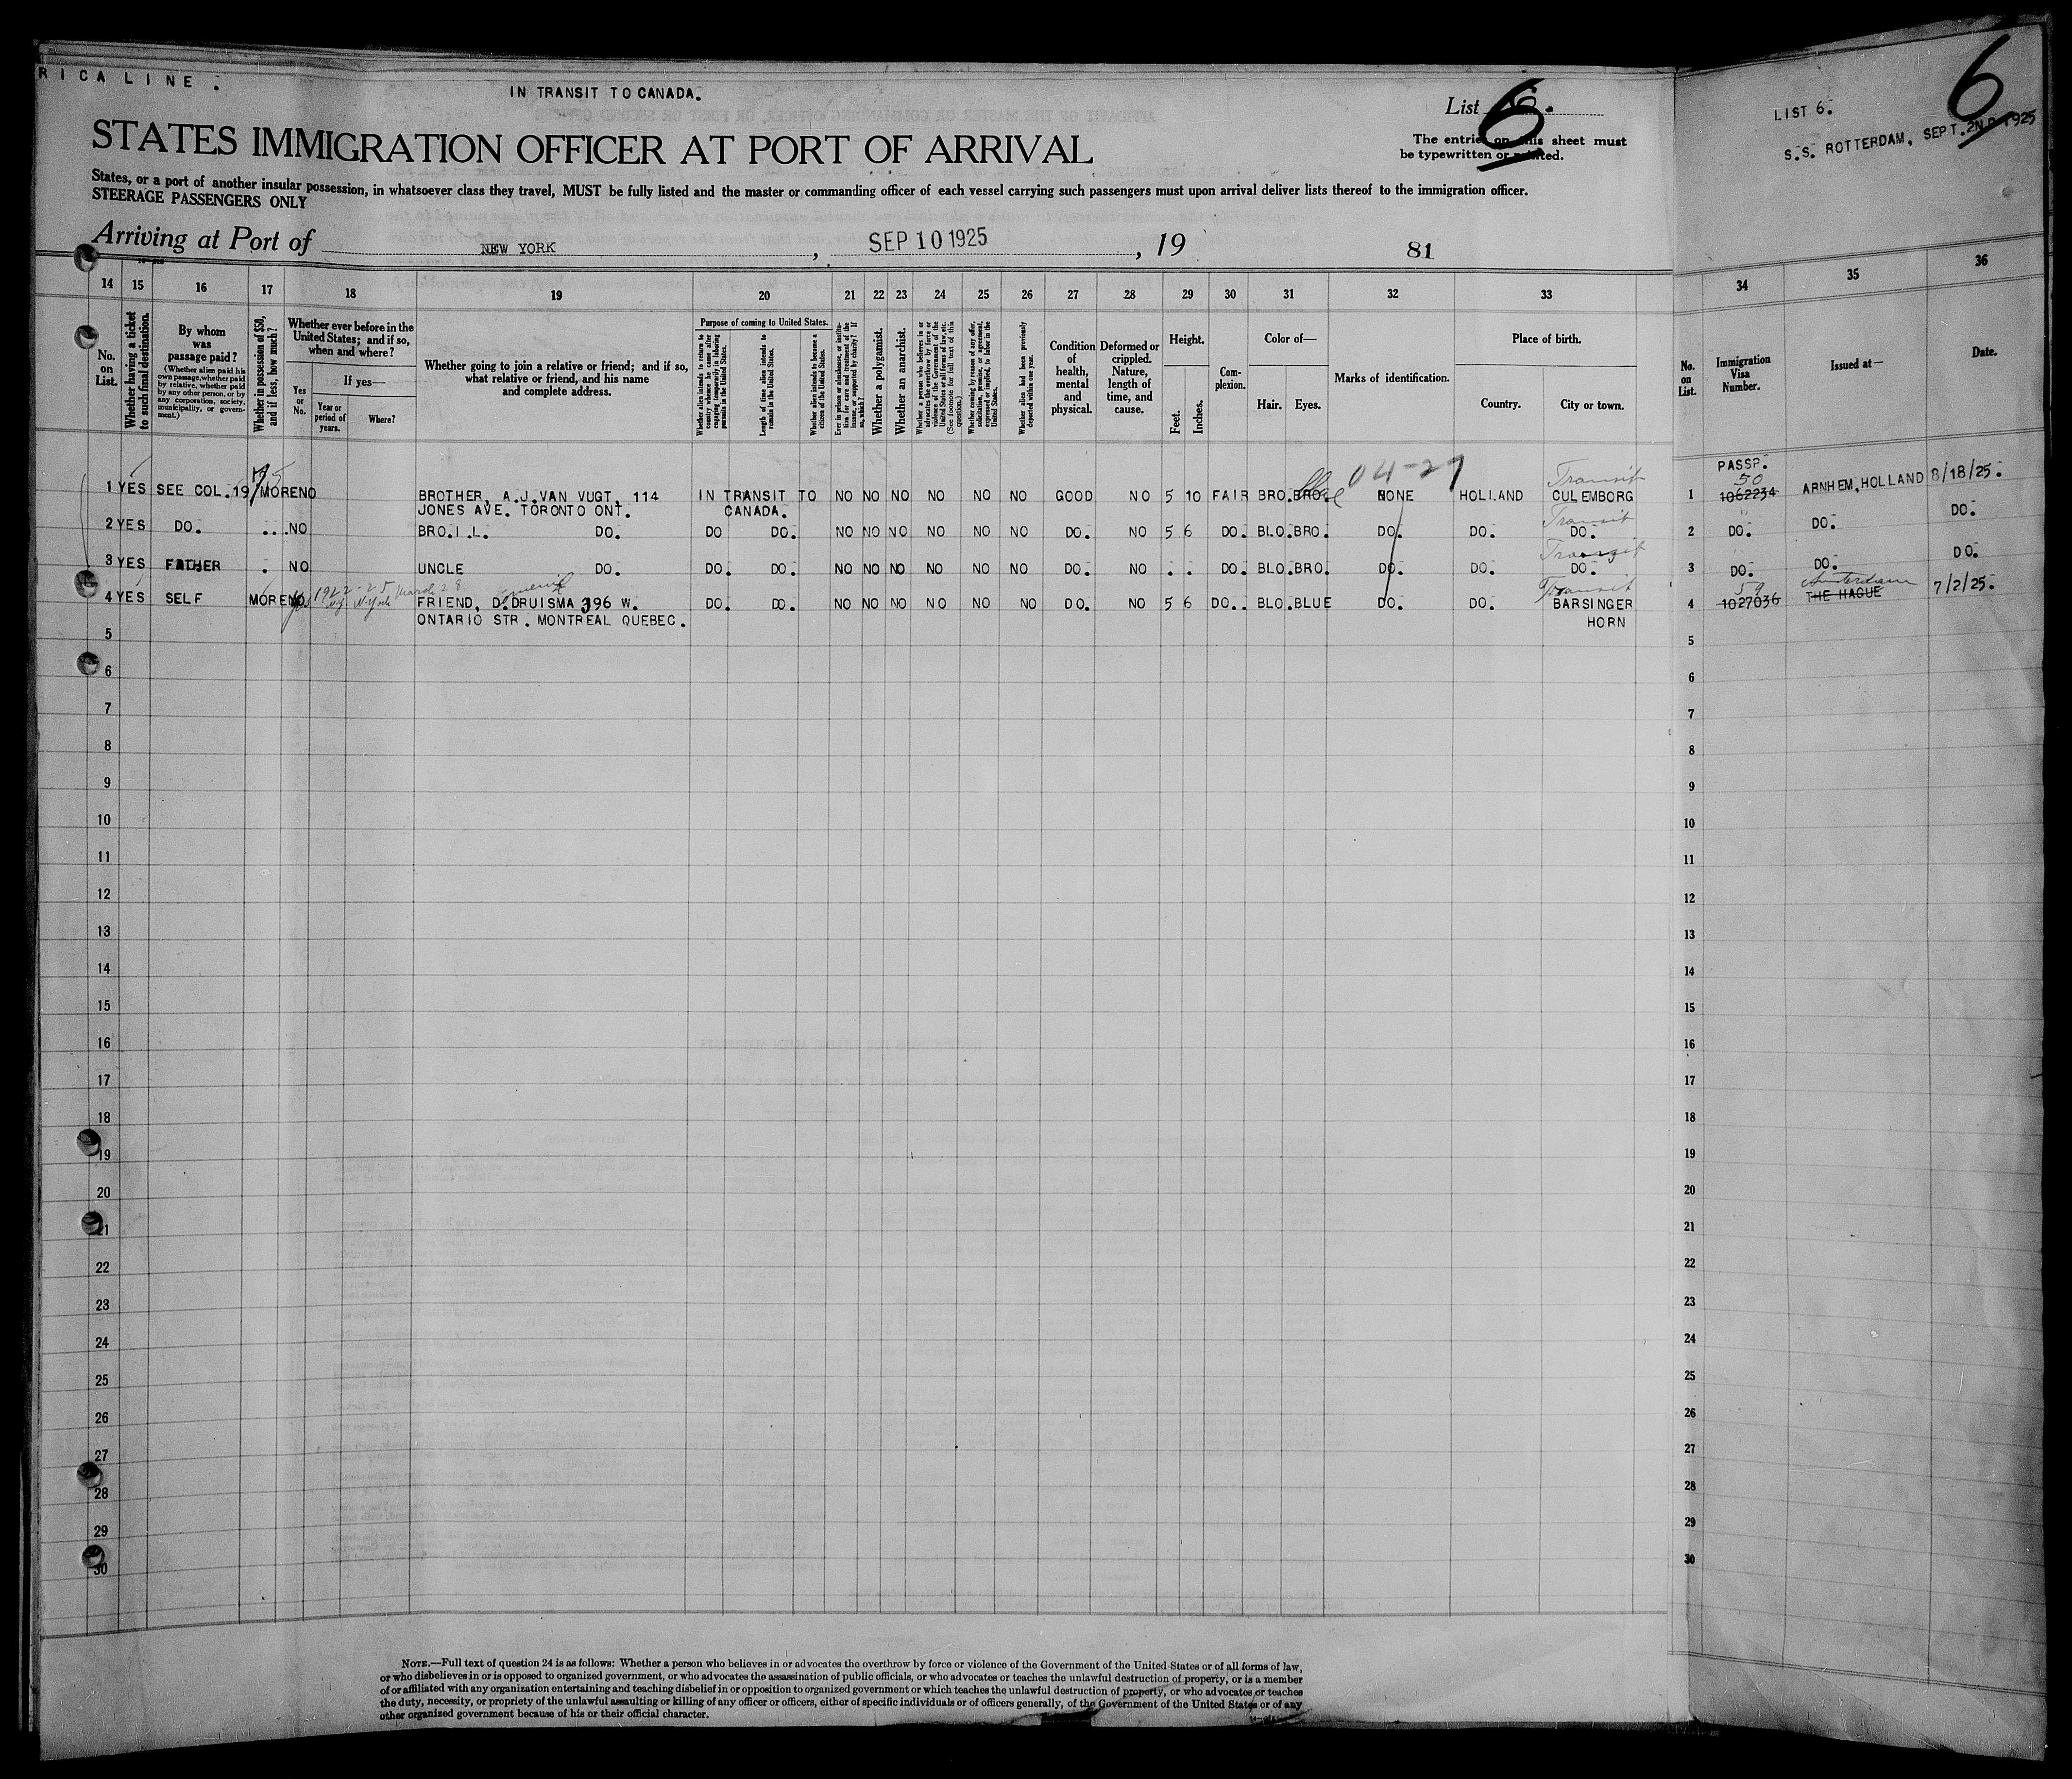 RICA LINE .
IN TRANSIT TO CANADA.
List 6.
6
The entries on this sheet must
be typewritten or printed.
STATES IMMIGRATION OFFICER AT PORT OF ARRIVAL
States, or a port of another insular possession, in whatsoever class they travel, MUST be fully listed and the master or commanding officer of each vessel carrying such passengers must upon arrival deliver lists thereof to the immigration officer.
STEERAGE PASSENGERS ONLY
Arriving at Port of NEW YORK , SEP 10 1925 , 19 81
LIST 6.
6
S.S. ROTTERDAM, SEPT. 2ND 1925
14 15 16 17 18 19 20 21 22 23 24 25 26 27 28 29 30 31 32 33 34 35 36
No. on List.
Whether having a ticket to such final destination.
By whom was passage paid?
(Whether alien paid his own passage, whether paid by relative, whether paid by any other person, or by any corporation, society, municipality, or government.)
Whether in possession of $50, and if less, how much?
Whether ever before in the United States; and if so, when and where?
Yes or No.
If yes—
Year or period of years.
Where?
Whether going to join a relative or friend; and if so, what relative or friend, and his name and complete address.
Purpose of coming to United States.
Whether alien intends to return to country whence he came after engaging temporarily in laboring pursuits in the United States.
Length of time alien intends to remain in the United States.
Whether alien intends to become a citizen of the United States.
Ever in prison or almshouse, or institution for care and treatment of the insane, or supported by charity? If so, which?
Whether a polygamist.
Whether an anarchist.
Whether a person who believes in or advocates the overthrow by force or violence of the Government of the United States or all forms of law, etc. (See footnote for full text of this question.)
Whether coming by reason of any offer, solicitation, promise, or agreement, expressed or implied, to labor in the United States.
Whether alien had been previously deported within one year.
Condition of health, mental and physical.
Deformed or crippled. Nature, length of time, and cause.
Height.
Feet.
Inches.
Complexion.
Color of—
Hair.
Eyes.
Marks of identification.
Place of birth.
Country.
City or town.
No. on List.
Immigration Visa Number.
Issued at—
Date.
04-27
Transit
PASSP.
50
1 YES SEE COL.19 75 MORE NO BROTHER, A.J.VAN VUGT, 114 IN TRANSIT TO NO NO NO NO NO NO GOOD NO 5 10 FAIR BRO. BRO. NONE HOLLAND CULEMBORG 1 1062234 ARNHEM, HOLLAND 8/18/25.
JONES AVE. TORONTO ONT. CANADA.
Transit
2 YES DO. NO BRO.I.L. DO. DO DO. NO NO NO NO NO NO DO. NO 5 6 DO. BLO. BRO. DO. DO. DO. 2 DO. DO. DO.
Transit
3 YES FATHER . NO UNCLE DO. DO. DO. NO NO NO NO NO NO DO. NO . . DO. BLO. BRO. DO. DO. DO. 3 DO. DO. DO.
1922-25 Transit 59 Amsterdam
4 YES SELF MORE NO yes FRIEND, D.DRUISMA 396 W. DO. DO. NO NO NO NO NO NO DO. NO 5 6 DO.. BLO. BLUE DO. DO. BARSINGER 4 1027036 THE HAGUE 7/2/25.
ONTARIO STR. MONTREAL QUEBEC. HORN
5 5
6 6
7 7
8 8
9 9
10 10
11 11
12 12
13 13
14 14
15 15
16 16
17 17
18 18
19 19
20 20
21 21
22 22
23 23
24 24
25 25
26 26
27 27
28 28
29 29
30 30
NOTE.—Full text of question 24 is as follows: Whether a person who believes in or advocates the overthrow by force or violence of the Government of the United States or of all forms of law,
or who disbelieves in or is opposed to organized government, or who advocates the assassination of public officials, or who advocates or teaches the unlawful destruction of property, or is a member
of or affiliated with any organization entertaining and teaching disbelief in or opposition to organized government or which teaches the unlawful destruction of property, or who advocates or teaches
the duty, necessity, or propriety of the unlawful assaulting or killing of any officer or officers, either of specific individuals or of officers generally, of the Government of the United States or of any
other organized government because of his or their official character.